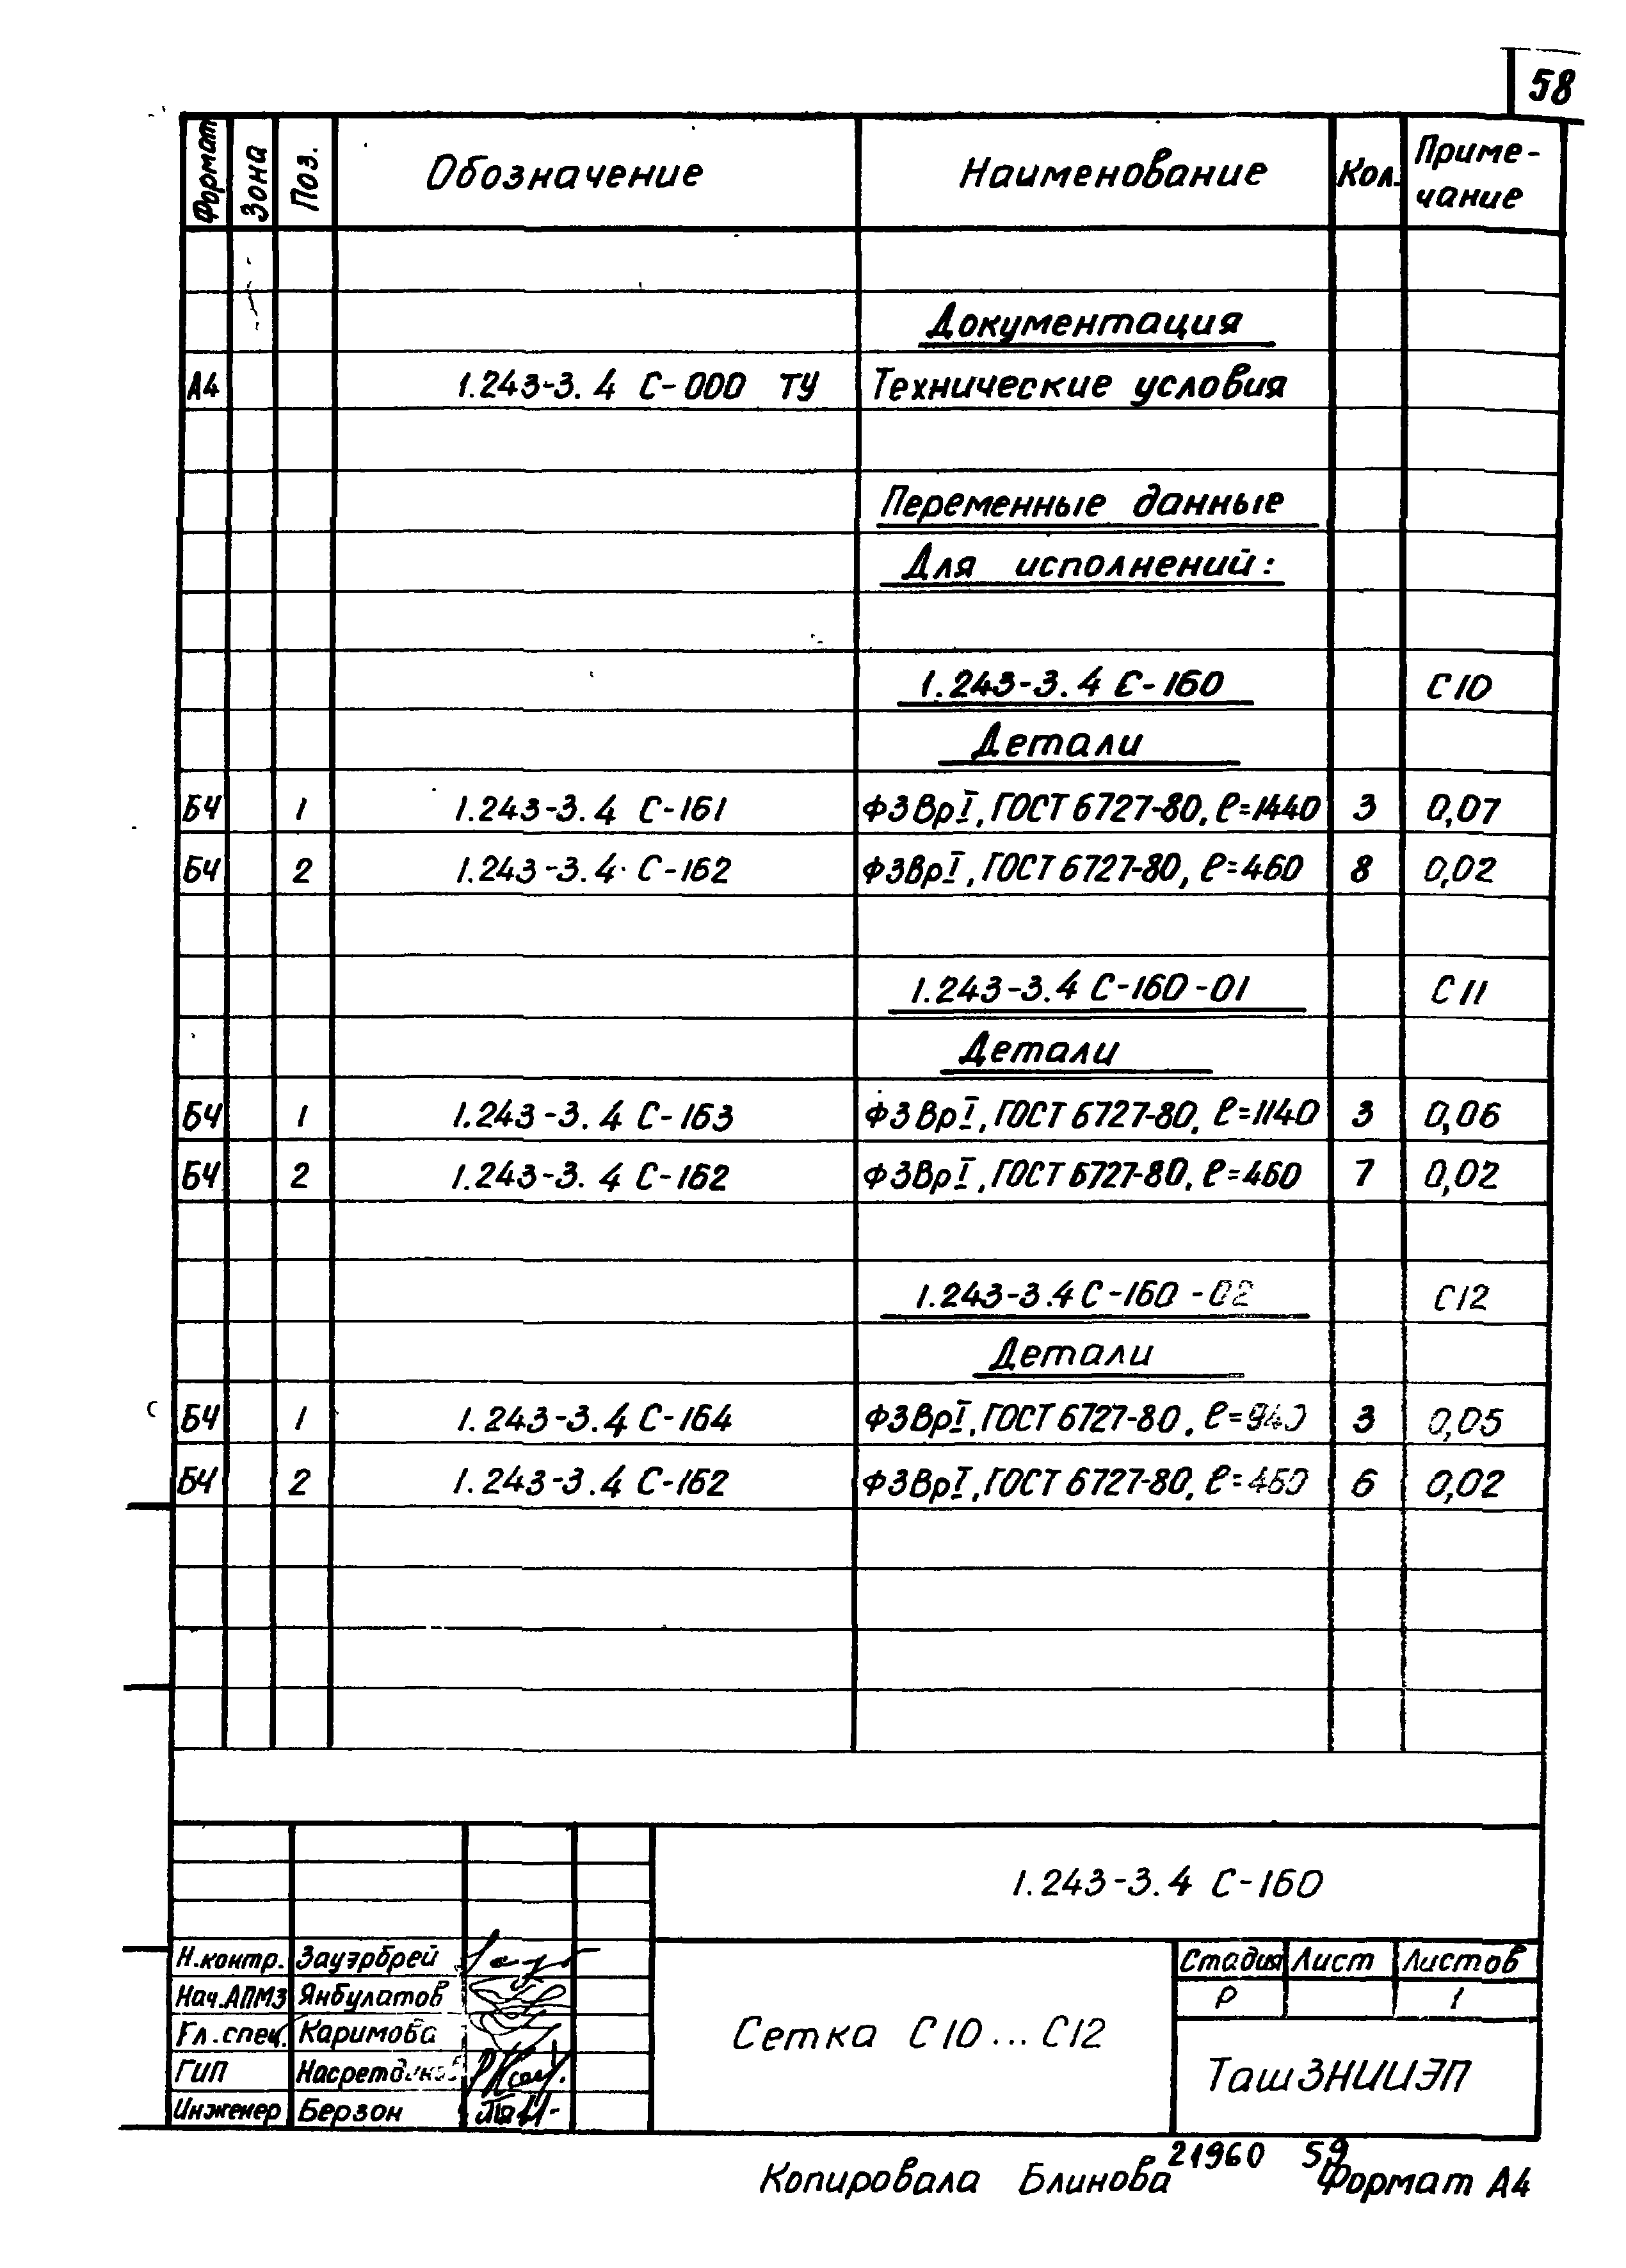 58
Формат Зона Поз. Обозначение Наименование Кол. Приме-
чание
Документация
А4 1.243-3.4 С-000 ТУ Технические условия
Переменные данные
Для исполнений:
1.243-3.4 С-160 С10
Детали
БЧ 1 1.243-3.4 С-161 Ф3ВрI, ГОСТ 6727-80, ℓ=1440 3 0,07
БЧ 2 1.243-3.4 С-162 Ф3ВрI, ГОСТ 6727-80, ℓ=460 8 0,02
1.243-3.4 С-160-01 С11
Детали
БЧ 1 1.243-3.4 С-163 Ф3ВрI, ГОСТ 6727-80, ℓ=1140 3 0,06
БЧ 2 1.243-3.4 С-162 Ф3ВрI, ГОСТ 6727-80, ℓ=460 7 0,02
1.243-3.4 С-160-02 С12
Детали
БЧ 1 1.243-3.4 С-164 Ф3ВрI, ГОСТ 6727-80, ℓ=940 3 0,05
БЧ 2 1.243-3.4 С-162 Ф3ВрI, ГОСТ 6727-80, ℓ=460 6 0,02
1.243-3.4 С-160
Н.контр. Зауэрбрей
Нач.АПМ3 Янбулатов
Гл.спец. Каримова
ГИП Насретдинов
Инженер Берзон
Сетка С10...С12
Стадия Лист Листов
Р 1
ТашЗНИИЭП
21960 59
Копировала Блинова Формат А4